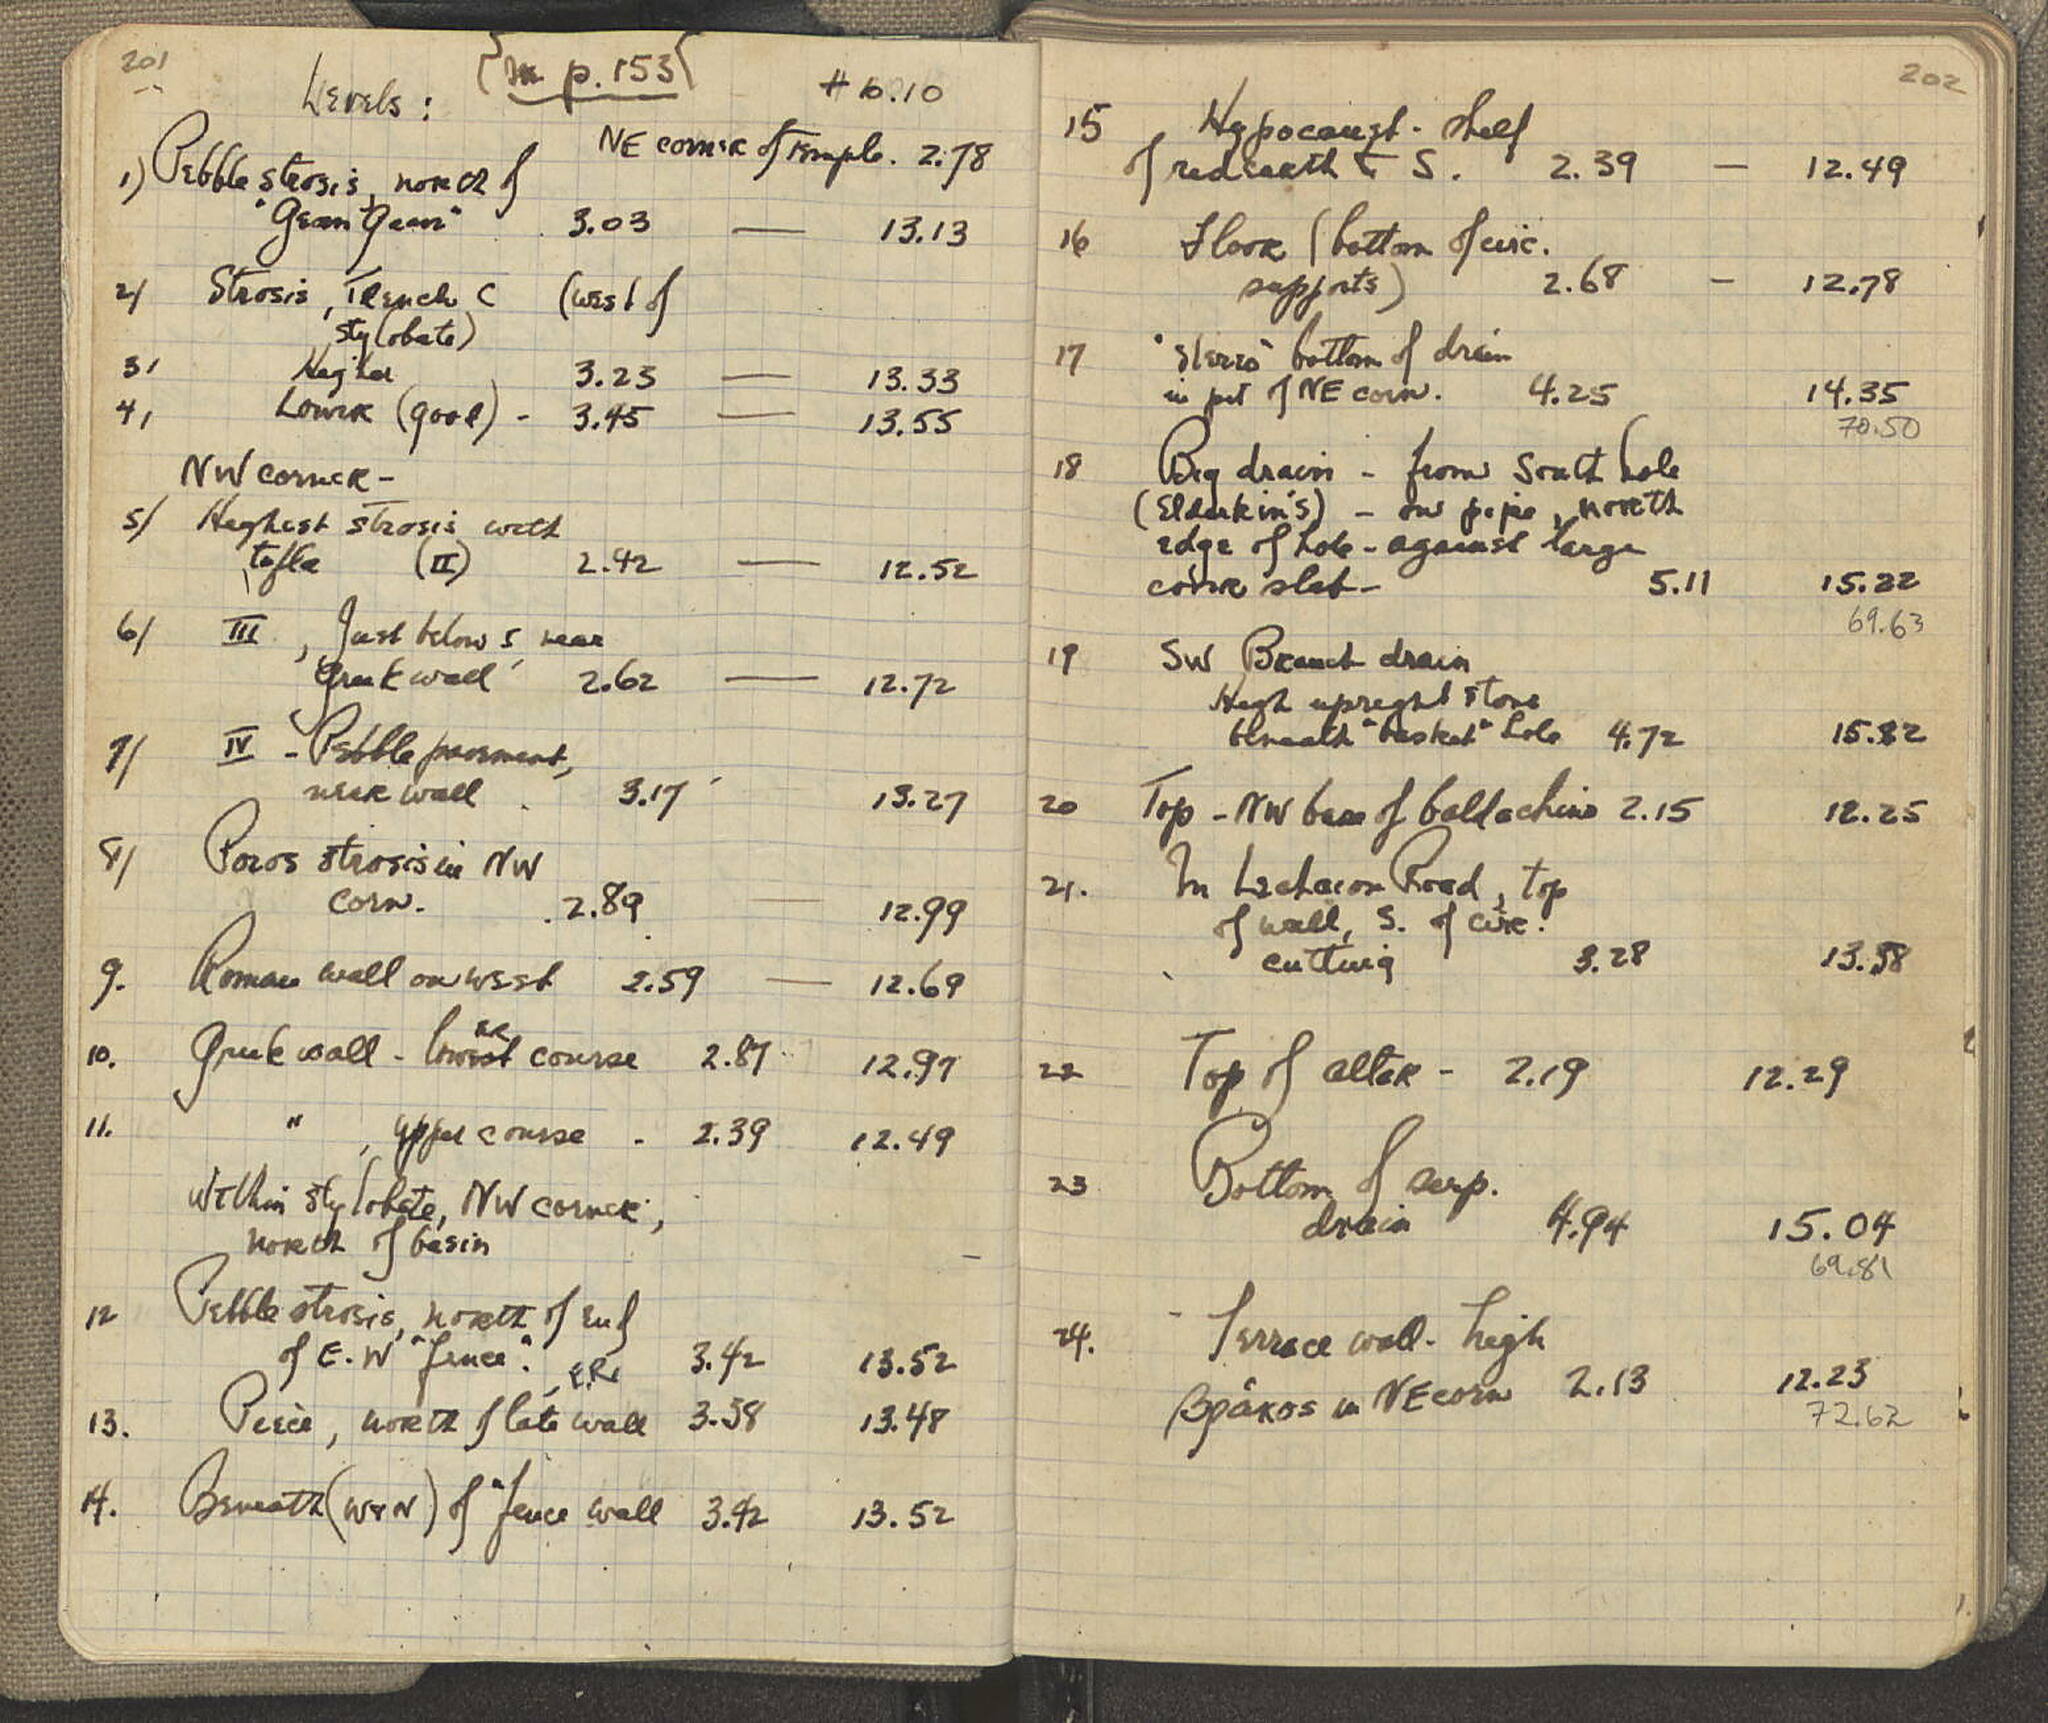 201
p. 153
# 10.10
Levels:
NE corner of temple. 2.78
1) Pebble strosis, north of
3.03 — 13.13
2/ Strosis, Trench C (west of
stylobate)
3/ Higher 3.23 — 13.33
4/ Lower (good) - 3.45 — 13.55
NW corner -
5/ Highest strosis with
(II) 2.42 — 12.52
6/ III, Just below 5, near
Greek wall 2.62 — 12.72
7/ IV - Pebble pavement,
near wall 3.17 13.27
8/ Poros strosis in NW
corn. 2.89 — 12.99
9. Roman wall on west 2.59 — 12.69
10. Greek wall - lower course 2.87 12.97
11. " , upper course - 2.39 12.49
Within stylobate, NW corner,
north of basin
12 Pebble strosis, north of end
of E-W "fence". 3.42 13.52
13. north of late wall 3.38 13.48
14. Beneath (W & N) of "fence wall 3.42 13.52
202
15 Hypocaust - shelf
of red earth to S. 2.39 — 12.49
16 Floor (bottom of circ.
supports) 2.68 — 12.78
17 "Stereo" bottom of drain
in pit of NE corn. 4.25 14.35
70.50
18 Big drain - from South hole
(Elderkin's) - on pipe, north
edge of hole - against large
cover slab - 5.11 15.22
69.63
19 SW Branch drain
High upright stone
beneath "basket" hole 4.72 15.82
20 Top - NW base of baldachino 2.15 12.25
21. In Lechaion Road, top
of wall, S. of circ.
cutting 3.28 13.38
22 Top of altar - 2.19 12.29
23 Bottom of serp.
drain 4.94 15.04
69.81
24. Terrace wall - high
βράκος in NE corn 2.13 12.23
72.62